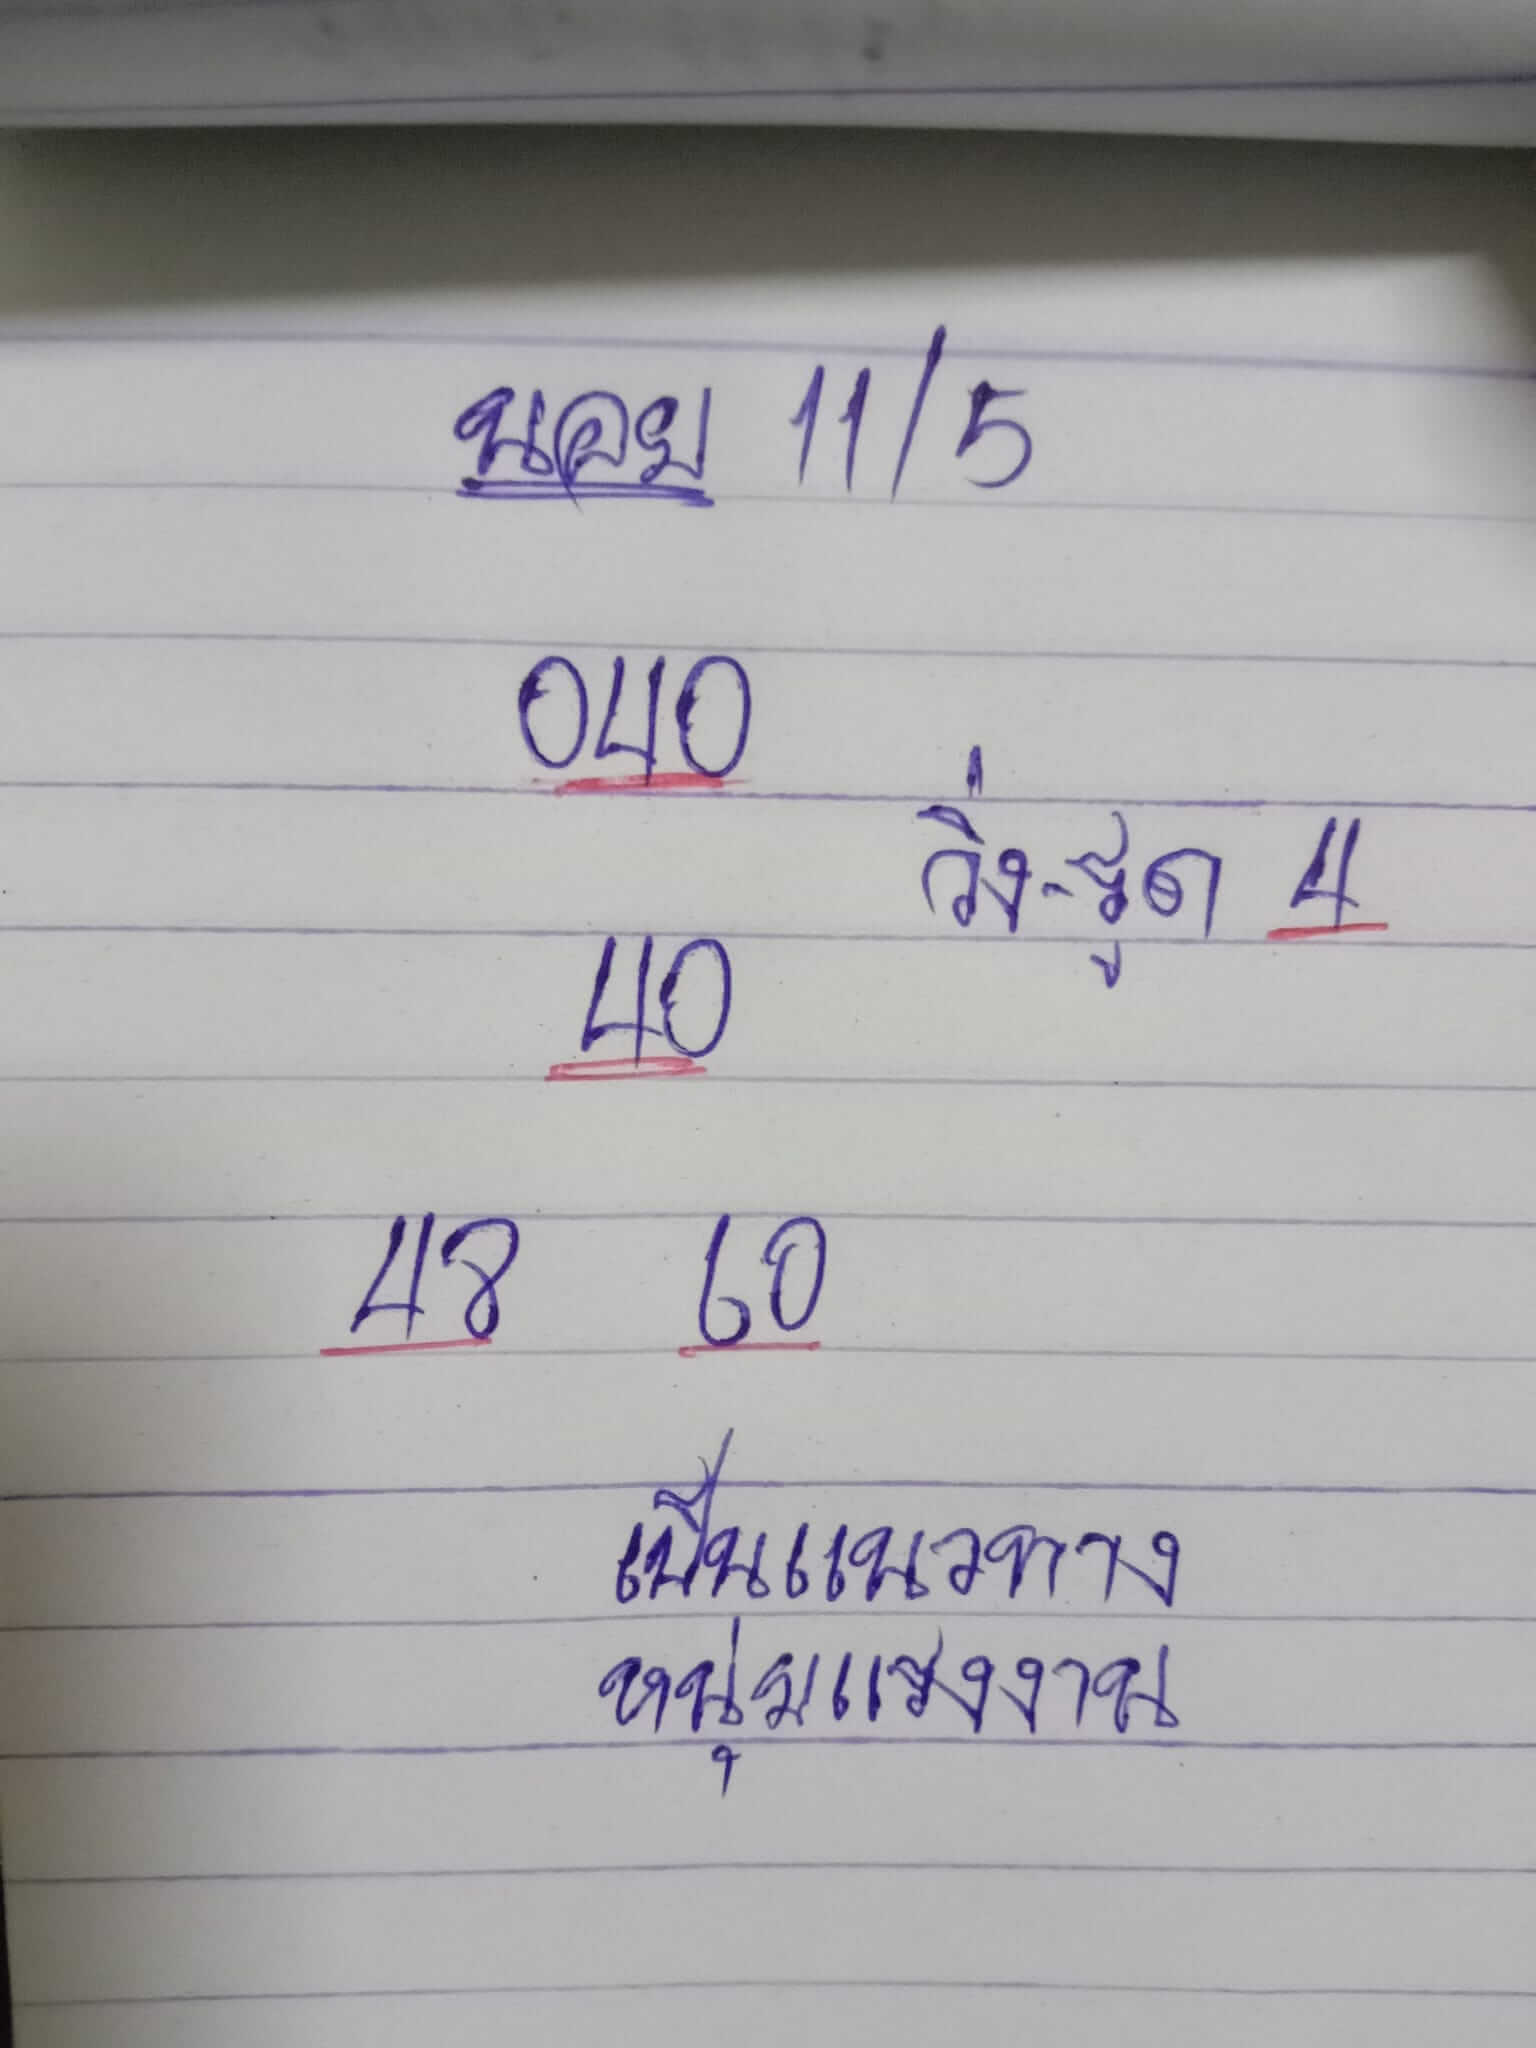 นอย 11/5
040
วิ่ง-รูด 4
40
48 60
เป็นแนวทาง
หนุ่มแรงงาน